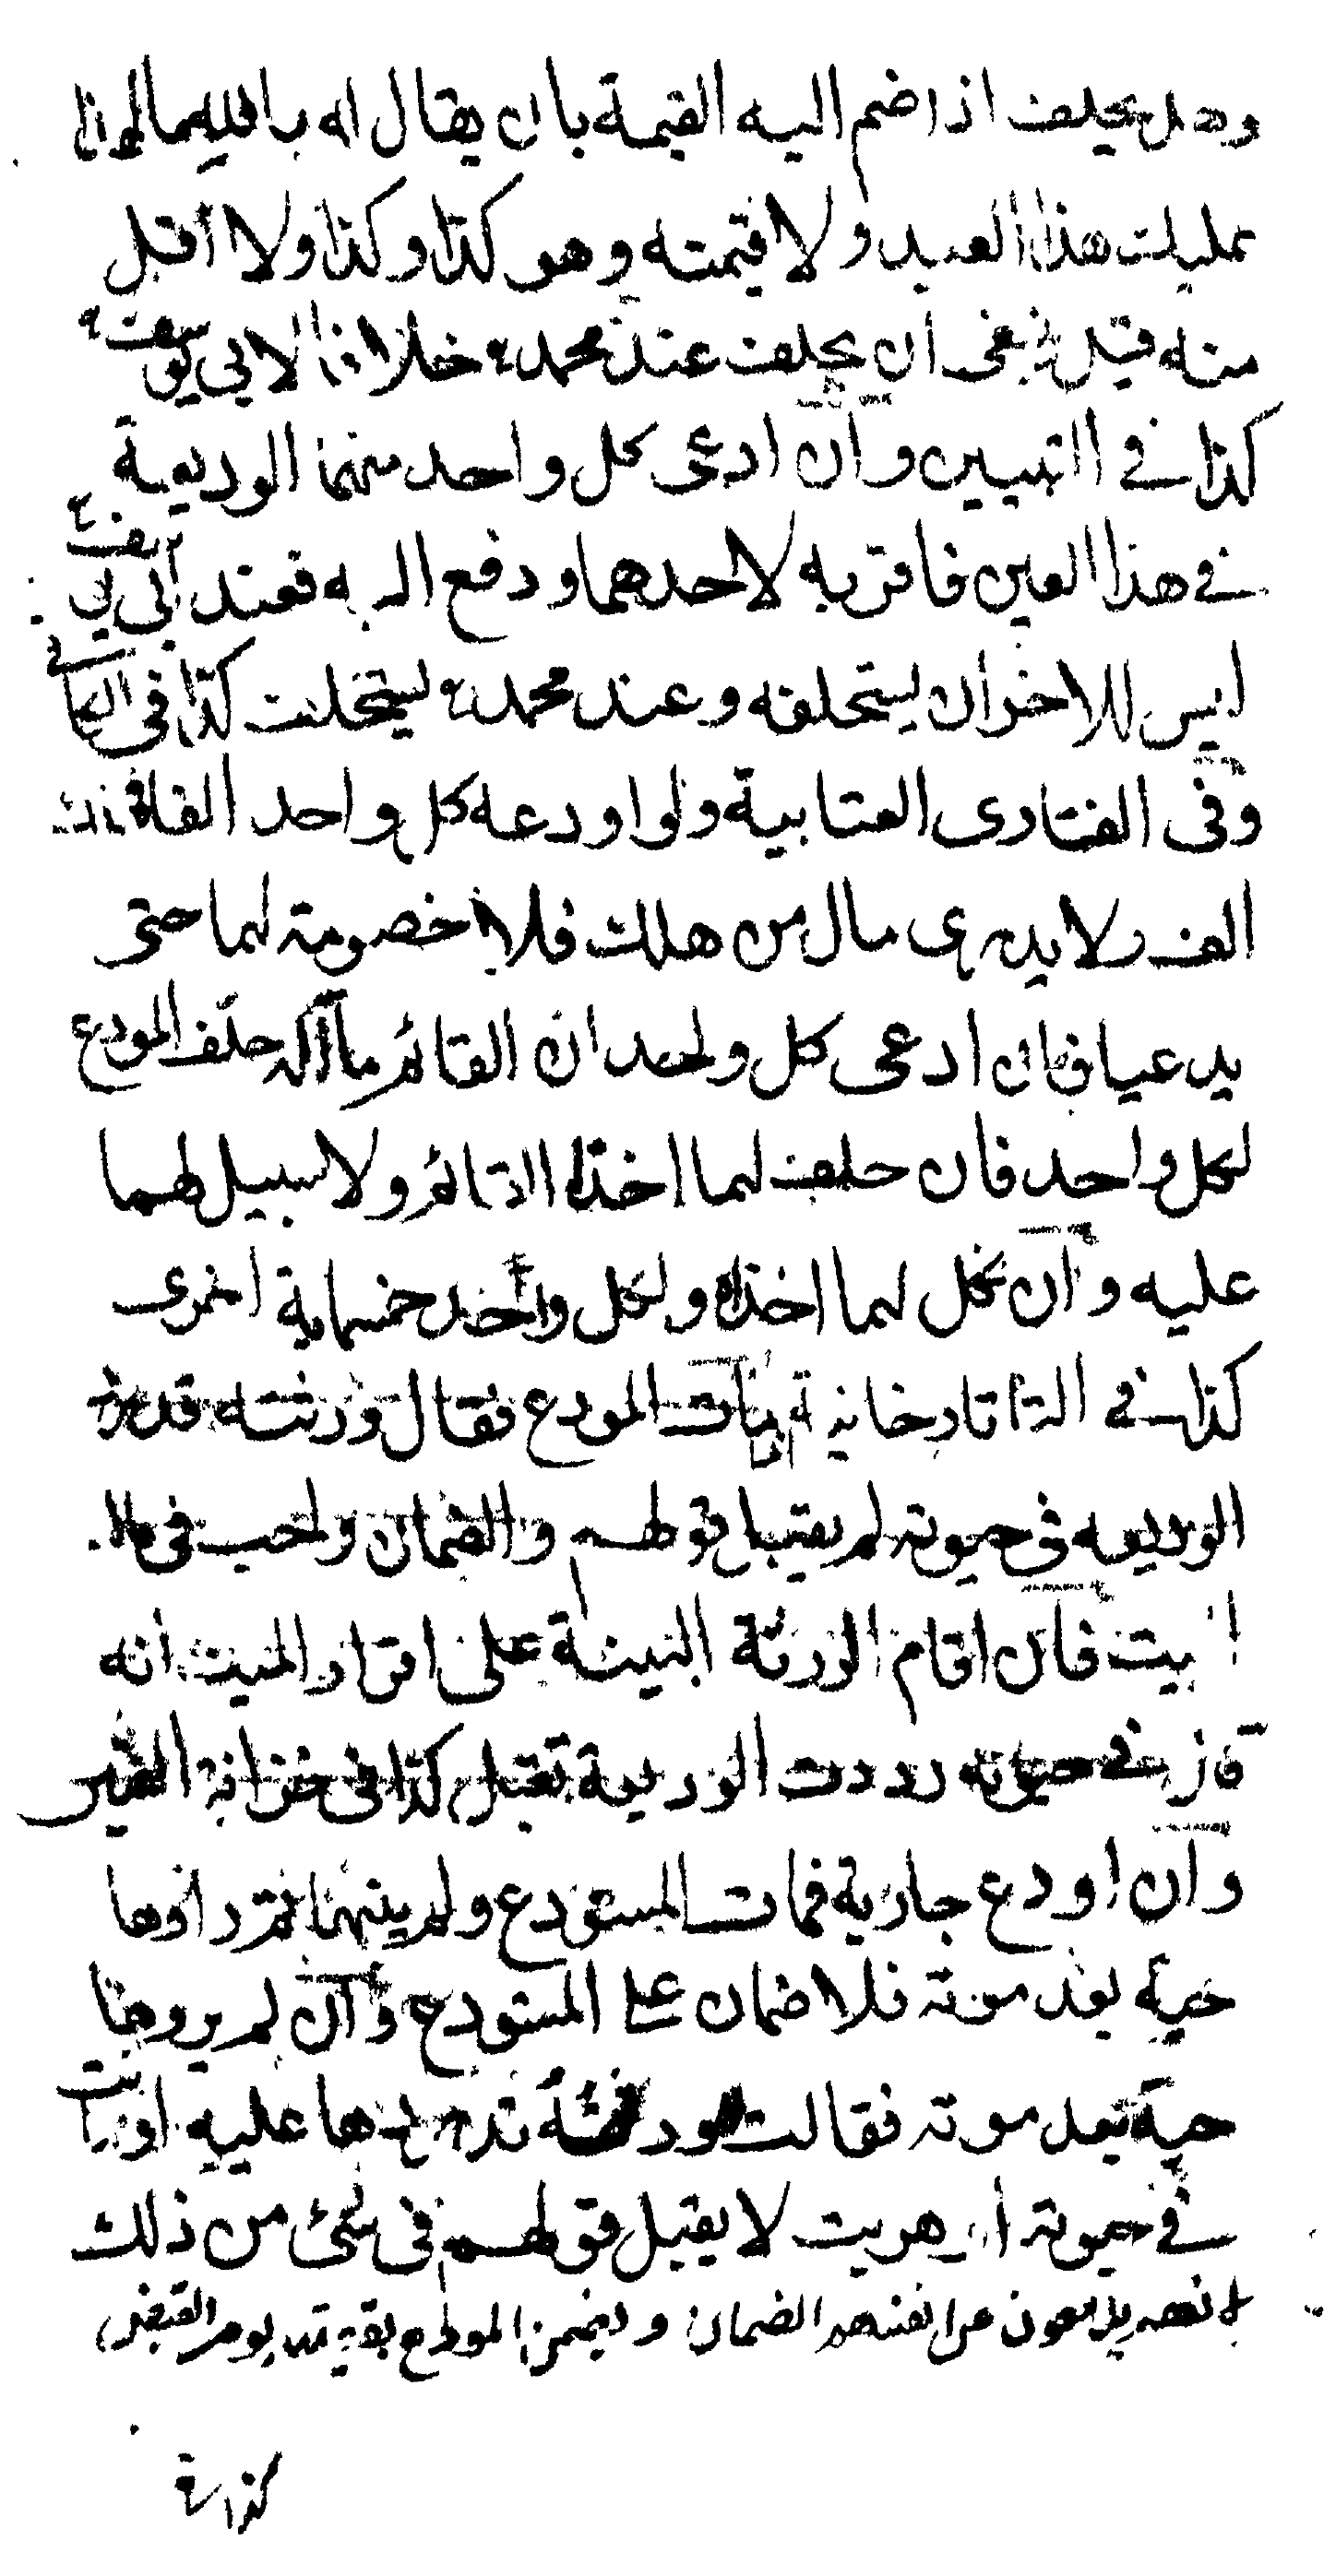 وهل يحلف اذا ضم اليه القيمة بان يقال له بالله ما لهذا
عليك هذا العبد ولا قيمته وهو كذا وكذا ولا اقل
منه قيل ينبغى ان يحلف عند محمد خلافا لابي يوسف
كذا في التبيين وان ادعى كل واحد منهما الوديعة
في هذا العين فاقر به لاحدهما ودفع اليه فعند ابى يوسف
ليس للاخر ان يستحلفه وعند محمد يستحلف كذا في
وفى الفتاوى العتابية ولو اودعه كل واحد الفا
الف ولا يدرى مال من هلك فلا خصومة لهما حتى
يدعيا فان ادعى كل واحد ان القائم ماله حلف المودع
لكل واحد فان حلف لهما اخذا القائم ولا سبيل لهما
عليه وان نكل لهما اخذاه ولكل واحد خمسماية اخرى
كذا في التاتارخانية مات المودع فقال ورثته قد رد
الوديعه في حيوته لم يقبل قولهم والضمان واجب في مال
الميت فان اقام الورثة البينة على اقرار الميت انه
قال في حيوته رددت الوديعة تقبل كذا في خزانة المفتين
وان اودع جارية فمات المستودع ولم يبينها ثم راوها
حية بعد موته فلا ضمان على المستودع وان لم يروها
حية بعد موته فقالت ورثته قد ردها عليه او ماتت
في حيوته او هربت لا يقبل قولهم في شئ من ذلك
لانهم يدفعون عن انفسهم الضمان ويضمن المودع بقيمته يوم القبض
كذا في